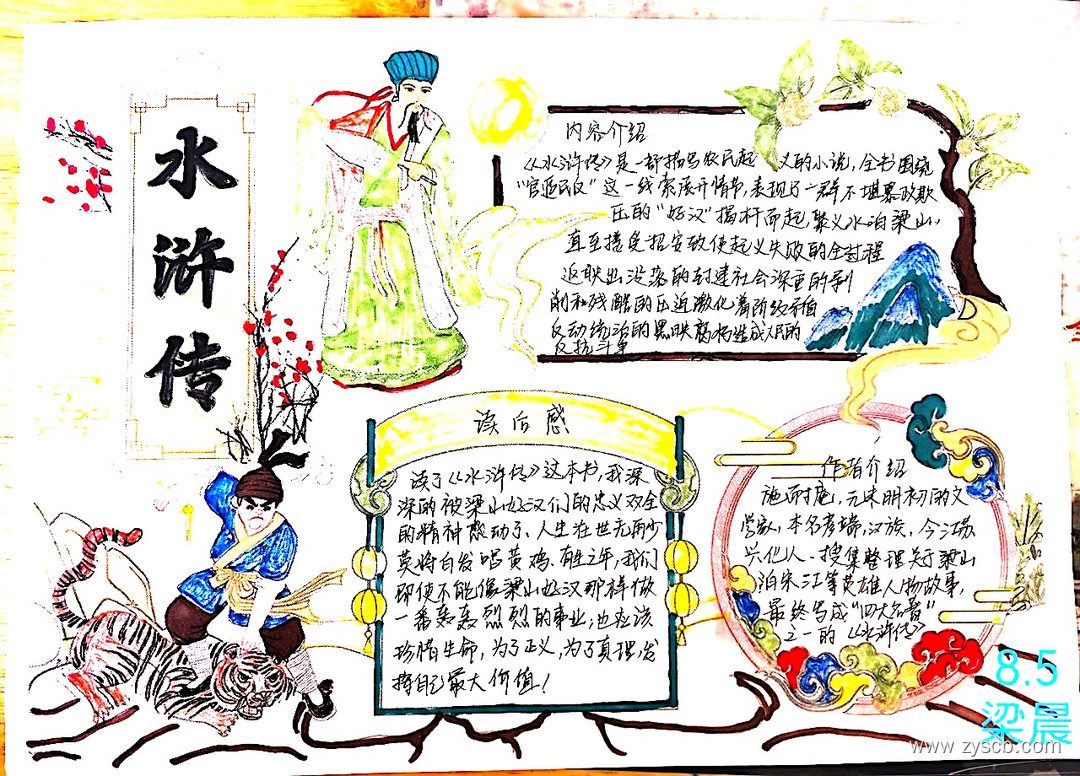 水浒传
内容介绍
《水浒传》是一部描写农民起义的小说,全书围绕
"官逼民反"这一线索展开情节,表现了一群不堪暴政欺
压的"好汉"揭杆而起,聚义水泊梁山,
直至接受招安致使起义失败的全过程
反映出没落的封建社会深重的剥
削和残酷的压迫激化着阶级矛盾
反动统治的黑暗腐朽造成人民的
反抗斗争
读后感
读了《水浒传》这本书,我深
深的被梁山好汉们的忠义双全
的精神感动了、人生在世无再少
莫将白发唱黄鸡、有生之年,我们
即使不能像梁山好汉那样做
一番轰轰烈烈的事业,也应该
珍惜生命,为了正义,为了真理,发
挥自己最大价值!
作者介绍
施耐庵,元末明初的文
学家,本名彦端,汉族,今江苏
兴化人、搜集整理关于梁山
泊宋江等英雄人物故事,
最终写成"四大名著"
之一的《水浒传》
8.5
梁晨
www.zyscb.com